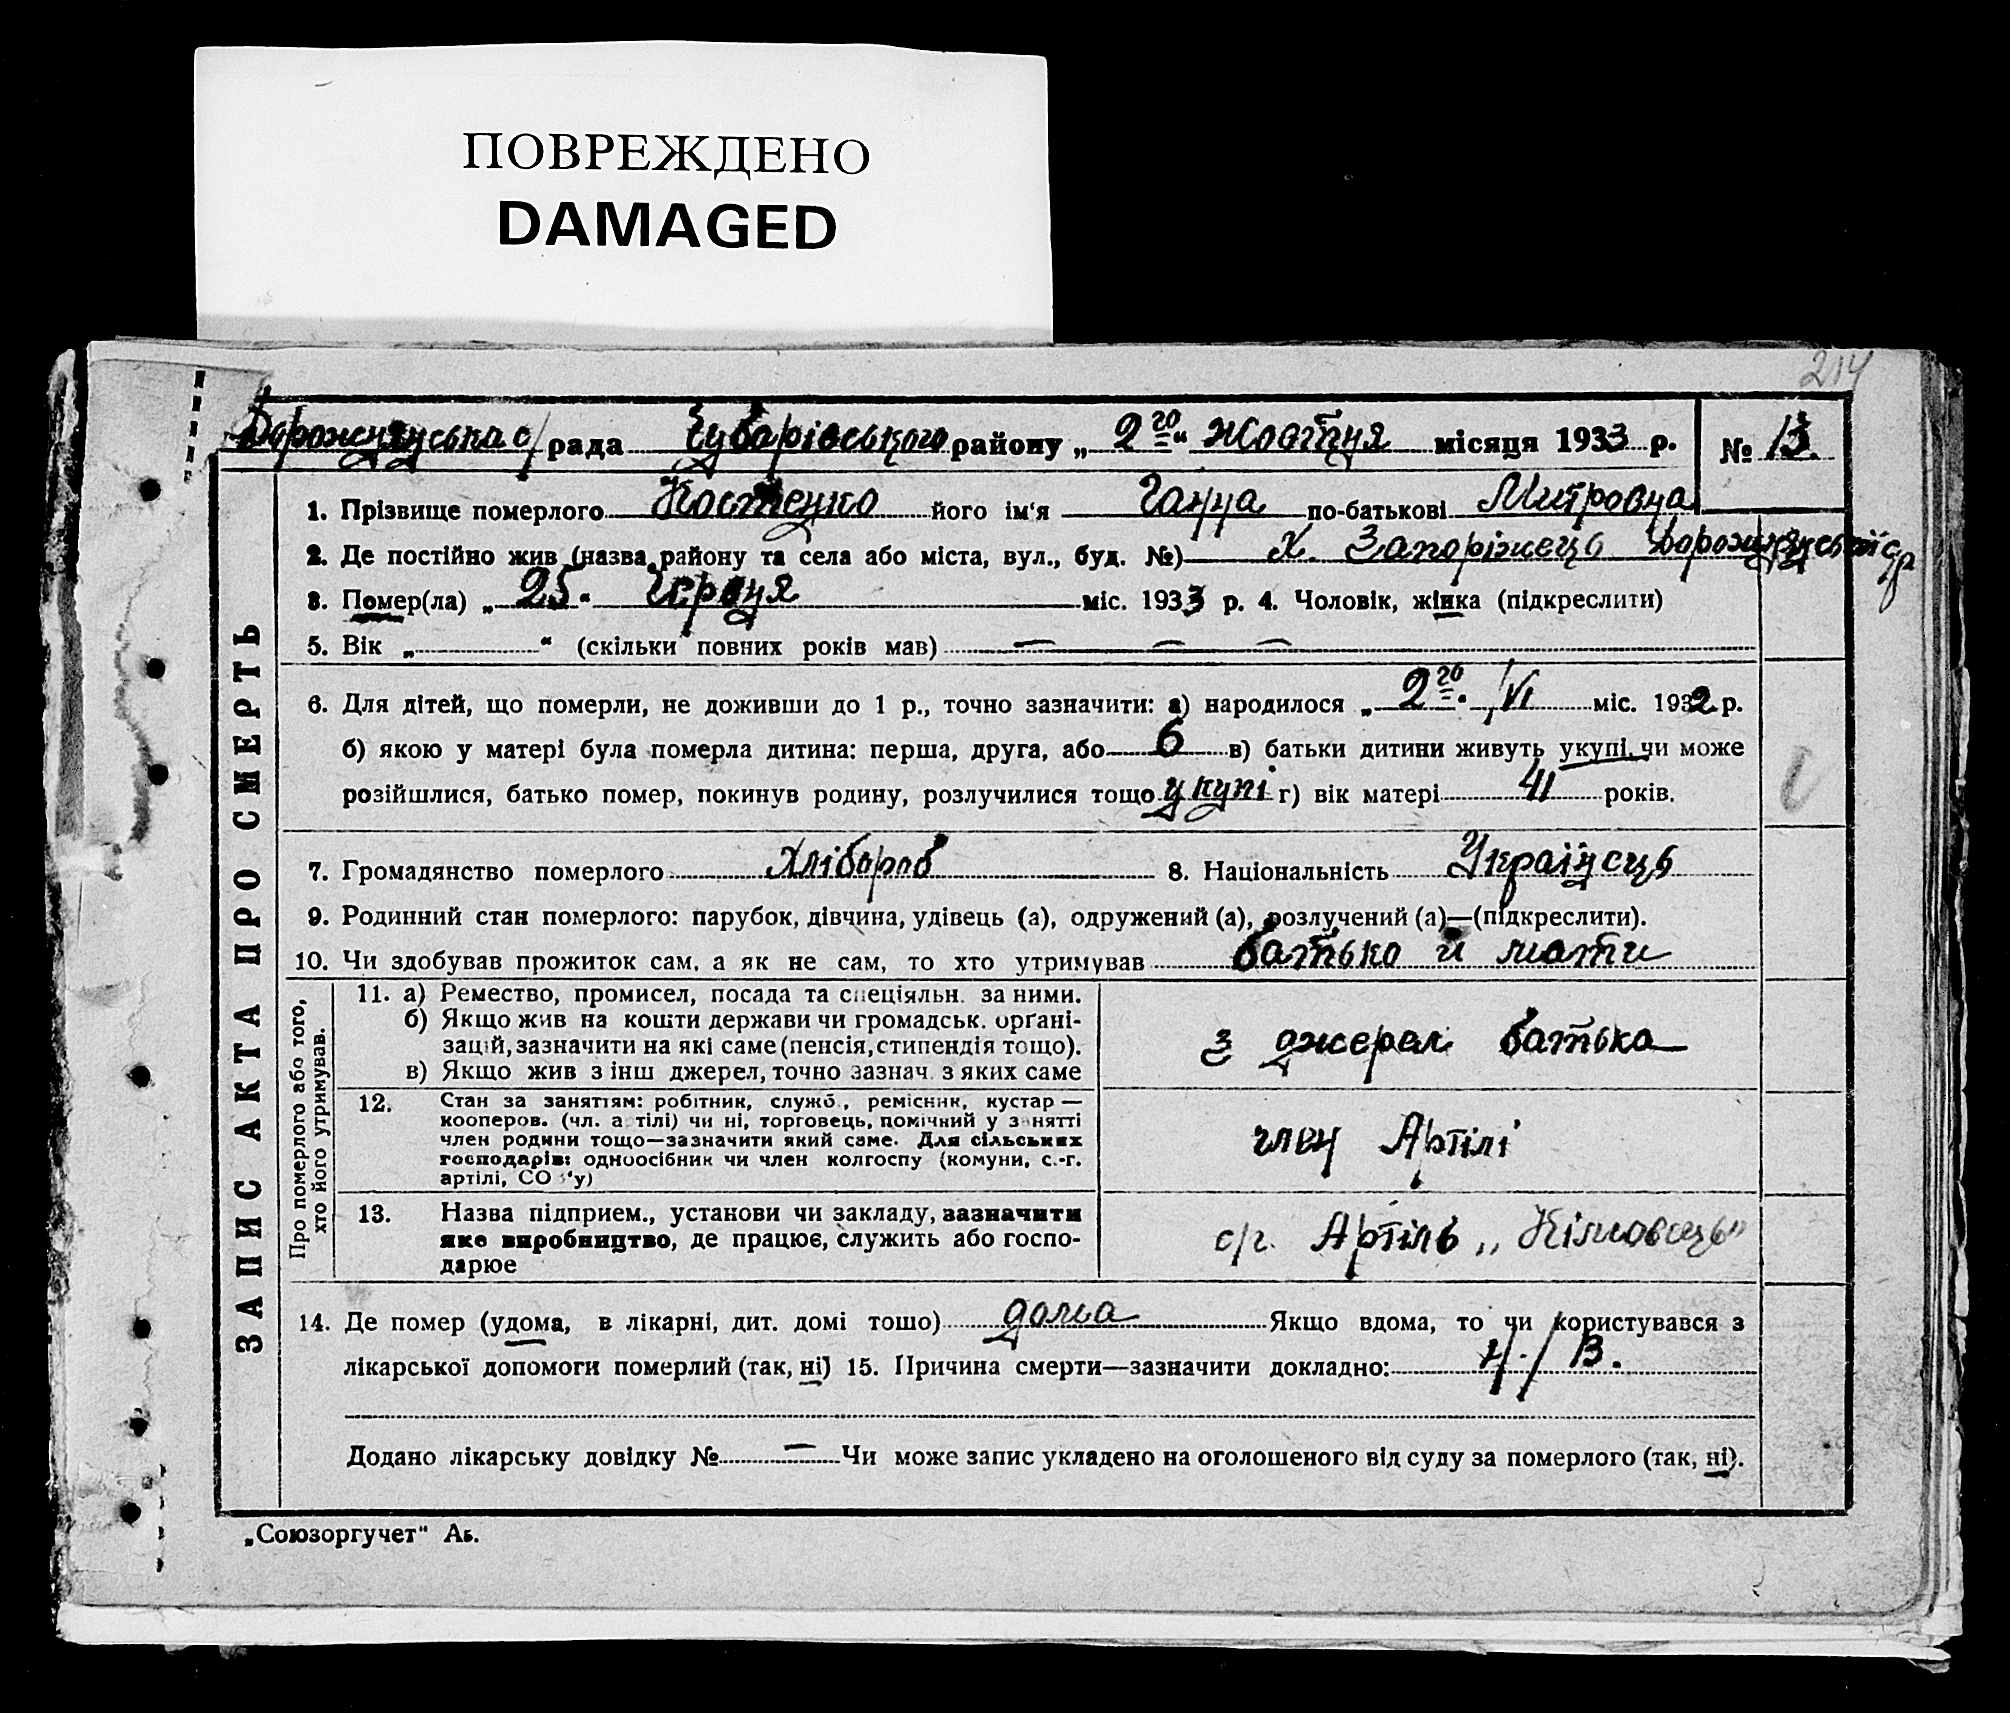 ПОВРЕЖДЕНО
DAMAGED
214
Дорожнянська с/рада Чубарівського району „2го“ Жовтня місяця 1933 р. № 13.
1. Прізвище померлого Костенко його ім'я Ганна по-батькові Митровна
2. Де постійно жив (назва району та села або міста, вул., буд. №) х. Запоріжець Дорожнянської с/р
3. Помер(ла) „25“ Червня міс. 1933 р. 4. Чоловік, жінка (підкреслити)
5. Вік „ “ (скільки повних років мав) — — —
6. Для дітей, що померли, не доживши до 1 р., точно зазначити: а) народилося „2го“ VI міс. 1932 р.
б) якою у матері була померла дитина: перша, друга, або 6 в) батьки дитини живуть укупі, чи може
розійшлися, батько помер, покинув родину, розлучилися тощо укупі г) вік матері 41 років.
7. Громадянство померлого Хлібороб 8. Національність Українець
9. Родинний стан померлого: парубок, дівчина, удівець (а), одружений (а), розлучений (а)—(підкреслити).
10. Чи здобував прожиток сам, а як не сам, то хто утримував батько и мати
11. а) Ремество, промисел, посада та спеціяльн. за ними.
б) Якщо жив на кошти держави чи громадськ. органі-
зацій, зазначити на які саме (пенсія, стипендія тощо).
в) Якщо жив з інш джерел, точно зазнач. з яких саме
з джерел батька
12. Стан за заняттям: робітник, служб., ремісник, кустар —
кооперов. (чл. артілі) чи ні, торговець, помічний у занятті
член родини тощо—зазначити який саме. Для сільських
господарів: одноосібник чи член колгоспу (комуни, с.-г.
артілі, СОЗ'у)
член Артілі
13. Назва підприєм., установи чи закладу, зазначити
яке виробництво, де працює, служить або госпо-
дарює
с/г. Артіль „Кімовець“
14. Де помер (удома, в лікарні, дит. домі тощо) дома Якщо вдома, то чи користувався з
лікарської допомоги померлий (так, ні) 15. Причина смерти—зазначити докладно: Н./В.
Додано лікарську довідку № — Чи може запис укладено на оголошеного від суду за померлого (так, ні).
„Союзоргучет“ Аь.
ЗАПИС АКТА ПРО СМЕРТЬ
Про померлого або того,
хто його утримував.